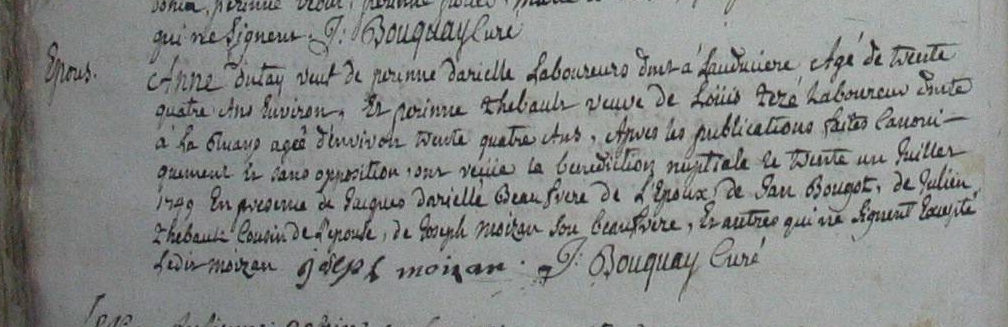 perinne
qui ne Signent. J: Bouquay Curé
Epous.
Anne dutay veuf de perinne darielle Laboureurs dmt à Lauduciere Agé de trente
quatre Ans Environ, Et perinne thebault veuve de Loüis Laboureur
à La agée d'environ trente quatre Ans, Apres les publications faites Canoni-
quement Et sans opposition, ont reçüe la benediction nuptiale le trente un Juillet
1749 En presence de Jacques darielle Beaufrere de L'Epoux, de Jan Bougot, de Julien
thebault Cousin de L'epouse, de Joseph moizan son beaufrere, Et autres qui ne Signent Excepté
Ledit moizan Joseph moizan. J: Bouquay Curé